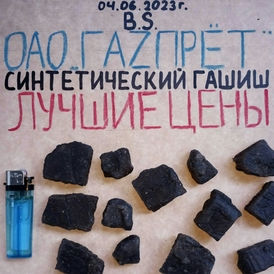 04.06.2023г.
B.S.
ОАО „ГАZПРЁТ"
СИНТЕТИЧЕСКИЙ ГАШИШ
ЛУЧШИЕ ЦЕНЫ